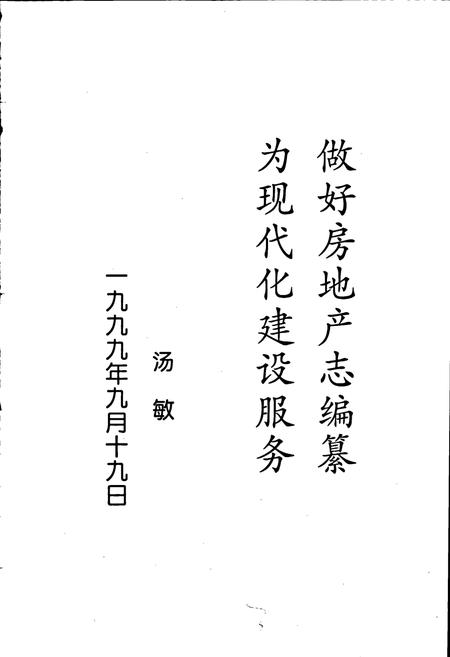 做好房地产志编纂
为现代化建设服务
汤敏
一九九九年九月十九日